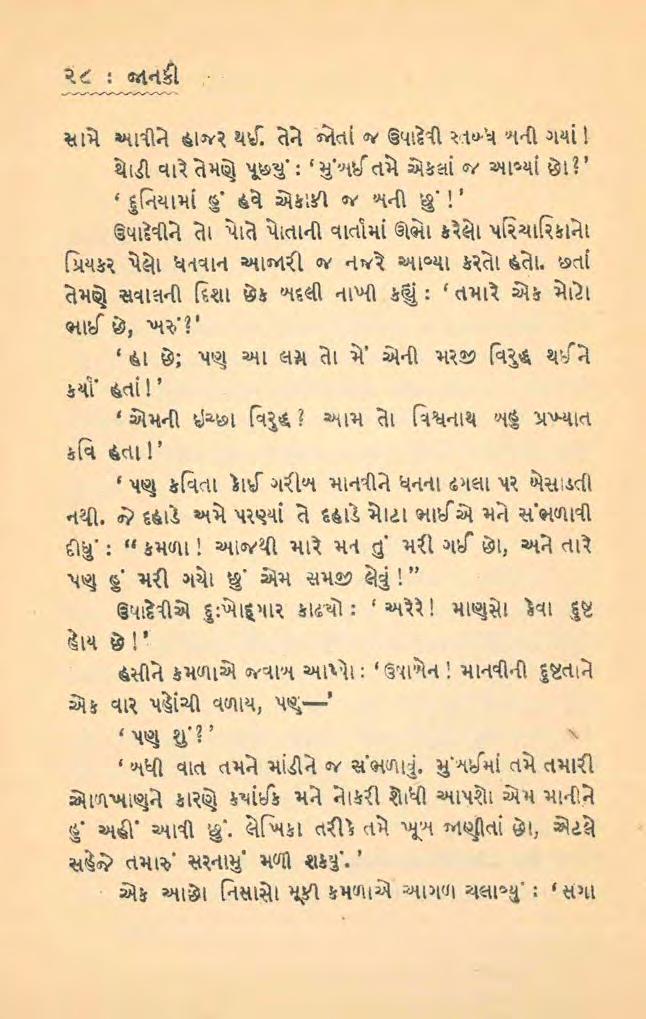 ૨૮ : જાનકી
સામે આવીને હાજર થઈ. તેને જોતાં જ ઉષાદેવી સ્તબ્ધ બની ગયાં!
થોડી વારે તેમણે પૂછ્યું : ‘મુંબઈ તમે એકલાં જ આવ્યાં છો?’
‘દુનિયામાં હું હવે એકાકી જ બની છું!’
ઉષાદેવીને તો પોતે પોતાની વાર્તામાં ઊભો કરેલો પરિચારિકાનો
પ્રિયકર પેલો ધનવાન આજારી જ નજરે આવ્યા કરતો હતો. છતાં
તેમણે સવાલની દિશા છેક બદલી નાખી કહ્યું : ‘તમારે એક મોટો
ભાઈ છે, ખરું?’
‘હા છે; પણ આ લગ્ન તો મેં એની મરજી વિરુદ્ધ થઈને
કર્યાં હતાં!’
‘એમની ઇચ્છા વિરુદ્ધ? આમ તો વિશ્વનાથ બહુ પ્રખ્યાત
કવિ હતા!’
‘પણ કવિતા કોઈ ગરીબ માનવીને ધનના ઢગલા પર બેસાડતી
નથી. જે દહાડે અમે પરણ્યાં તે દહાડે મોટા ભાઈએ મને સંભળાવી
દીધું : “કમળા! આજથી મારે મન તું મરી ગઈ છો, અને તારે
પણ હું મરી ગયો છું એમ સમજી લેવું!”
ઉષાદેવીએ દુઃખોદ્ગાર કાઢયો : ‘અરેરે! માણસો કેવા દુષ્ટ
હોય છે!’
હસીને કમળાએ જવાબ આપ્યો : ‘ઉષાબેન! માનવીની દુષ્ટતાને
એક વાર પહોંચી વળાય, પણ—’
‘પણ શું?’
‘બધી વાત તમને માંડીને જ સંભળાવું. મુંબઈમાં તમે તમારી
ઓળખાણને કારણે કયાંઈક મને નોકરી શોધી આપશો એમ માનીને
હું અહીં આવી છું. લેખિકા તરીકે તમે ખૂબ જાણીતાં છો, એટલે
સહેજે તમારું સરનામું મળી શકયું.’
એક આછો નિસાસો મૂકી કમળાએ આગળ ચલાવ્યું : ‘સગા